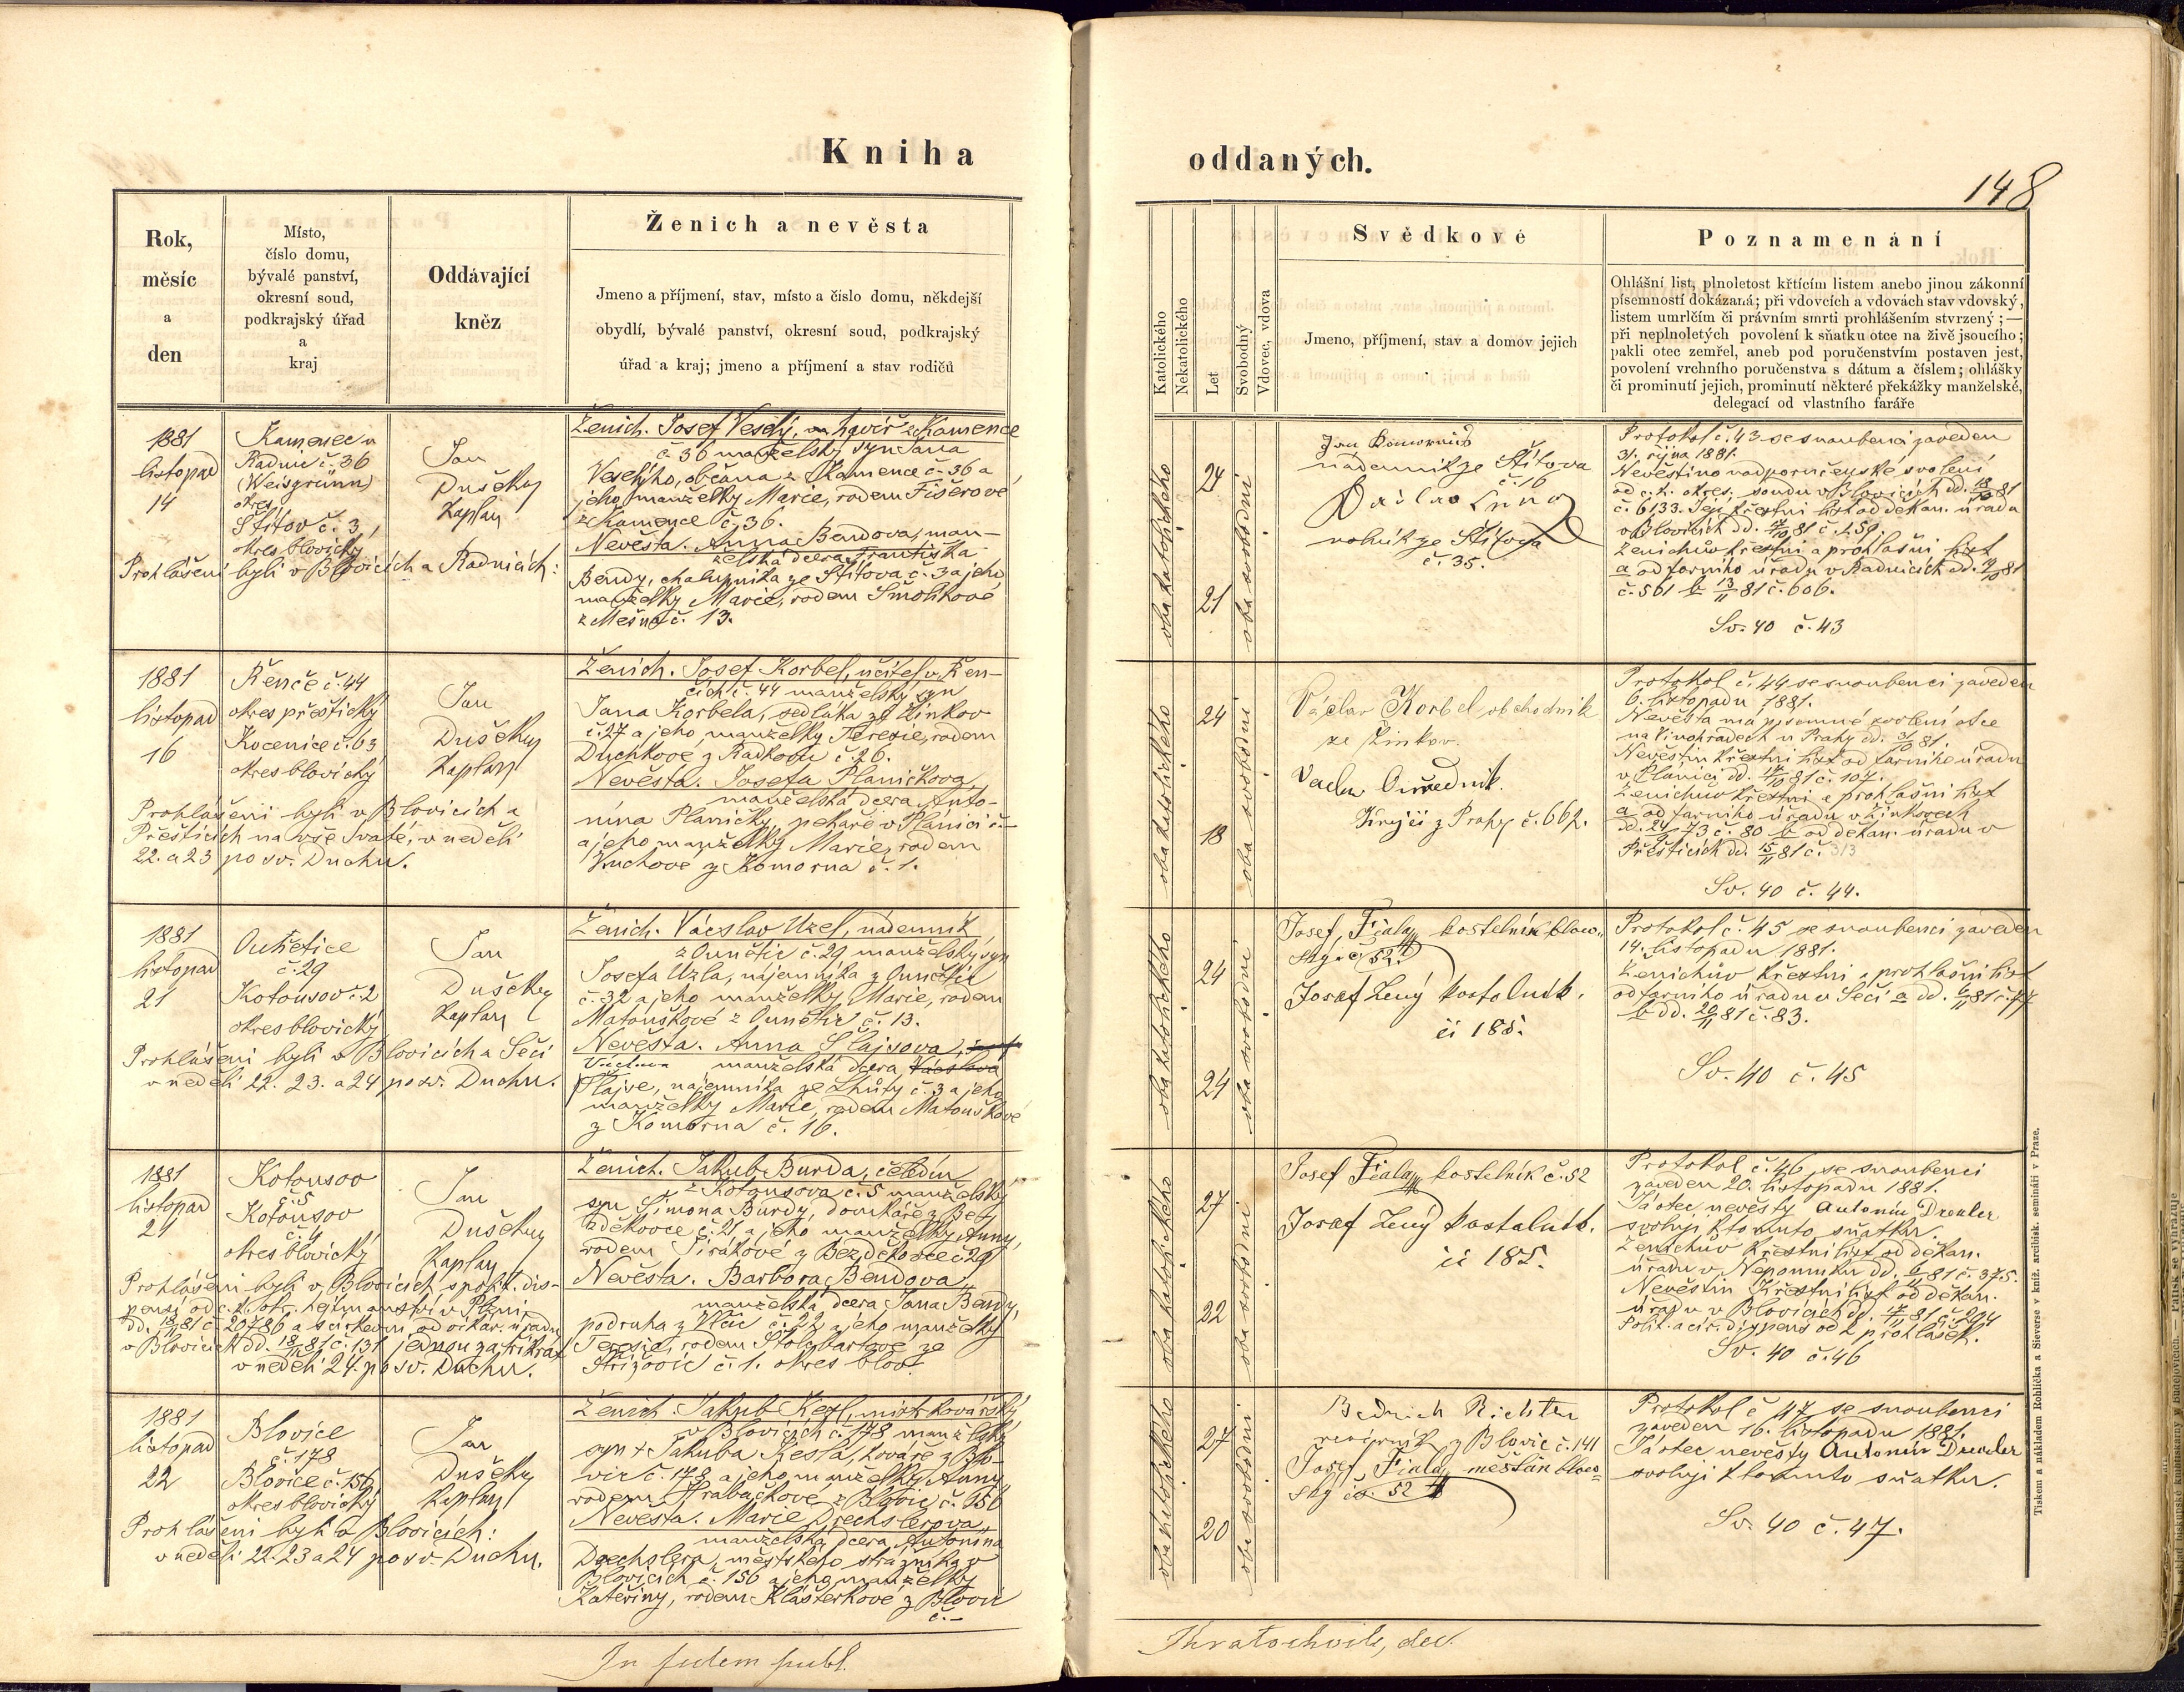 Kniha
oddaných.
148
Rok,
měsíc
a
den
Místo,
číslo domu,
bývalé panství,
okresní soud,
podkrajský úřad
a
kraj
Oddávající
kněz
Ženich a nevěsta
Jmeno a příjmení, stav, místo a číslo domu, někdejší
obydlí, bývalé panství, okresní soud, podkrajský
úřad a kraj; jmeno a příjmení a stav rodičů
Katolického
Nekatolického
Let
Svobodný
Vdovec, vdova
Svědkové
Jmeno, příjmení, stav a domov jejich
Poznamenání
Ohlášní list, plnoletost křtícím listem anebo jinou zákonní
písemností dokázaná; při vdovcích a vdovách stav vdovský,
listem umrlčím či právním smrti prohlášením stvrzený; —
při neplnoletých povolení k sňatku otce na živě jsoucího;
pakli otec zemřel, aneb pod poručenstvím postaven jest,
povolení vrchního poručenstva s dátum a číslem; ohlášky
či prominutí jejich, prominutí některé překážky manželské,
delegací od vlastního faráře
1881
listopad
14
Kamenec u
Radnic č. 36
(Weisgrünn)
okres
Štítov č. 3,
okres blovický
Jan
Dušek
kaplan
Prohlášeni byli v Blovicích a Radnicích:
Ženich. Josef Veselý, havíř z Kamence
č. 36 manželský syn Jana
Veselýho, občana z Kamence č. 36 a
jeho manželky Marie, rodem Fišerové
z Kamence č. 36.
Nevěsta. Anna Bendova, man-
želská dcera Františka
Bendy, chalupníka ze Štítova č. 3 a jeho
manželky Marie, rodem Smolíkové
z Mešna č. 13.
oba katolického
24
21
oba svobodní
nádenník ze Štítova
č. 16
rolník ze Štítova
č. 35.
Protokol č. 43 se snoubenci zaveden
31. října 1881.
Nevěstino nadporučenské svolení
od c. k. okres. soudu v Blovicích dd. 18/10 81
č. 6133. Její křestní list od děkan. úřadu
v Blovicích dd. 17/10 81 č. 259.
Ženichův křestní a prohlašní list
a od farního úřadu v Radnicích dd. 19/10 81
č. 561 b 13/11 81 č. 606.
Sv. 40 č. 43
1881
listopad
16
Řenče č. 44
okres přeštický
Kocenice č. 63
okres blovický
Jan
Dušek
kaplan
Prohlášeni byli v Blovicích a
Přešticích na vše Svaté, v neděli
22. a 23 po sv. Duchu.
Ženich. Josef Korbel, učitel v Řen-
čích č. 44 manželský syn
Jana Korbela, sedláka ze Žinkov
č. 27 a jeho manželky Terezie, rodem
Duchkové z Radkovic č. 26.
Nevěsta. Josefa Planičkova,
manželská dcera Anto-
nína Planičky, pekaře v Plánici č. –
a jeho manželky Marie, rodem
z Komorna č. 1.
oba katolického
24
18
oba svobodní
Václav Korbel obchodník
ze Žinkov.
Krejčí z Prahy č. 662.
Protokol č. 44 se snoubenci zaveden
6. listopadu 1881.
Nevěsta má písemné svolení otce
na Vinohradech u Prahy dd. 31/10 81.
Nevěstin křestní list od farního úřadu
v Plánici dd. 14/10 81 č. 107.
Ženichův křestní a prohlašní list
a od farního úřadu v Žinkovech
č. 80 b od děkan. úřadu v
Přešticích dd. 15/11 81 č. 313
Sv. 40 č. 44.
1881
listopad
21
Ouňetice
č. 29
Kotousov č. 2
okres blovický
Jan
Dušek
kaplan
Prohlášeni byli v Blovicích a Sečí
v neděli 22. 23. a 24 po sv. Duchu.
Ženich. Václav Uzel, nádenník
z Ounětic č. 29 manželský syn
Josefa Uzla, nájemníka z Ounětic
č. 32 a jeho manželky Marie, rodem
Matouškové z Ounětic č. 13.
Nevěsta. Anna Šlajsova,
Václava manželská dcera Václava
Šlajse, nájemníka ze Lhůty č. 3 a jeho
manželky Marie, rodem Matouškové
z Komorna č. 16.
oba katolického
24
24
oba svobodní
Josef Fiala kostelník blov.
č. 52
Josef Lený kostelník.
či 185.
Protokol č. 45 se snoubenci zaveden
14. listopadu 1881.
Ženichův křestní a prohlašní list
od farního úřadu v Sečí a dd. 6/11 81 č. 77
b dd. 20/11 81 č. 83.
Sv. 40 č. 45
1881
listopad
21
Kotousov
č. 5
Kotousov
č. 4
okres blovický
Jan
Dušek
kaplan
Prohlášeni byli v Blovicích s polit. dis-
pensí od c. k. okr. hejtmanství v Plzni
dd. 18/11 81 č. 20786 a s církevní od vikar. úřadu
v Blovicích dd. 18/11 81 č. 131 jednou za třikrát
v neděli 24. po sv. Duchu.
Ženich. Jakub Burda, čeledín
z Kotousova č. 5 manželský
syn Šimona Burdy, domkáře z Bez-
děkovce č. 21 a jeho manželky Anny,
rodem Sirákové z Bezděkovce č. 29
Nevěsta. Barbora Bendova,
manželská dcera Jana Bendy,
podruha z Vlčic č. 22 a jeho manželky
Terezie, rodem Štolbartové ze
Střížovic č. 1. okres blov.
oba katolického
27
22
oba svobodní
Josef Fiala kostelník č. 52
Josef Lený kostelník.
či 185.
Protokol č. 46 se snoubenci
zaveden 20. listopadu 1881.
Já otec nevěsty Antonín Drexler
svoluji k tomuto sňatku.
Ženichův křestní list od děkan.
úřadu v Nepomuku dd. 6/11 81 č. 375.
Nevěstin křestní list od děkan.
úřadu v Blovicích dd. 17/11 81 č. 294
Polit. a cír. dispens od 2 prohlášek.
Sv. 40 č. 46
1881
listopad
22
Blovice
č. 178
Blovice č. 156
okres blovický
Jan
Dušek
kaplan
Prohlášeni byli v Blovicích:
v neděli 22. 23 a 24 po sv. Duchu.
Ženich. Jakub Kesl, mistr kovářský
v Blovicích č. 178 manželský
syn † Jakuba Kesla, kováře z Blo-
vic č. 178 a jeho manželky Anny
rodem Hrabačkové z Blovic č. 156
Nevěsta. Marie Drechslerova
manželská dcera Antonína
Drechslera, městského strážníka v
Blovicích č. 156 a jeho manželky
Kateřiny, rodem Klášterkové z Blovic
č. –
oba katolického
27
20
oba svobodní
Bedrich Richter
z Blovic č. 141
Josef Fiala měšťan blov.
č. 52
Protokol č 47 se snoubenci
zaveden 16. listopadu 1881.
Já otec nevěsty Antonín Drexler
svoluji k tomuto sňatku.
Sv. 40 č. 47.
Tiskem a nákladem Rohlíčka a Sieverse v kníž. arcibisk. semináři v Praze.
In fidem publ.
Thratochvile, dec.